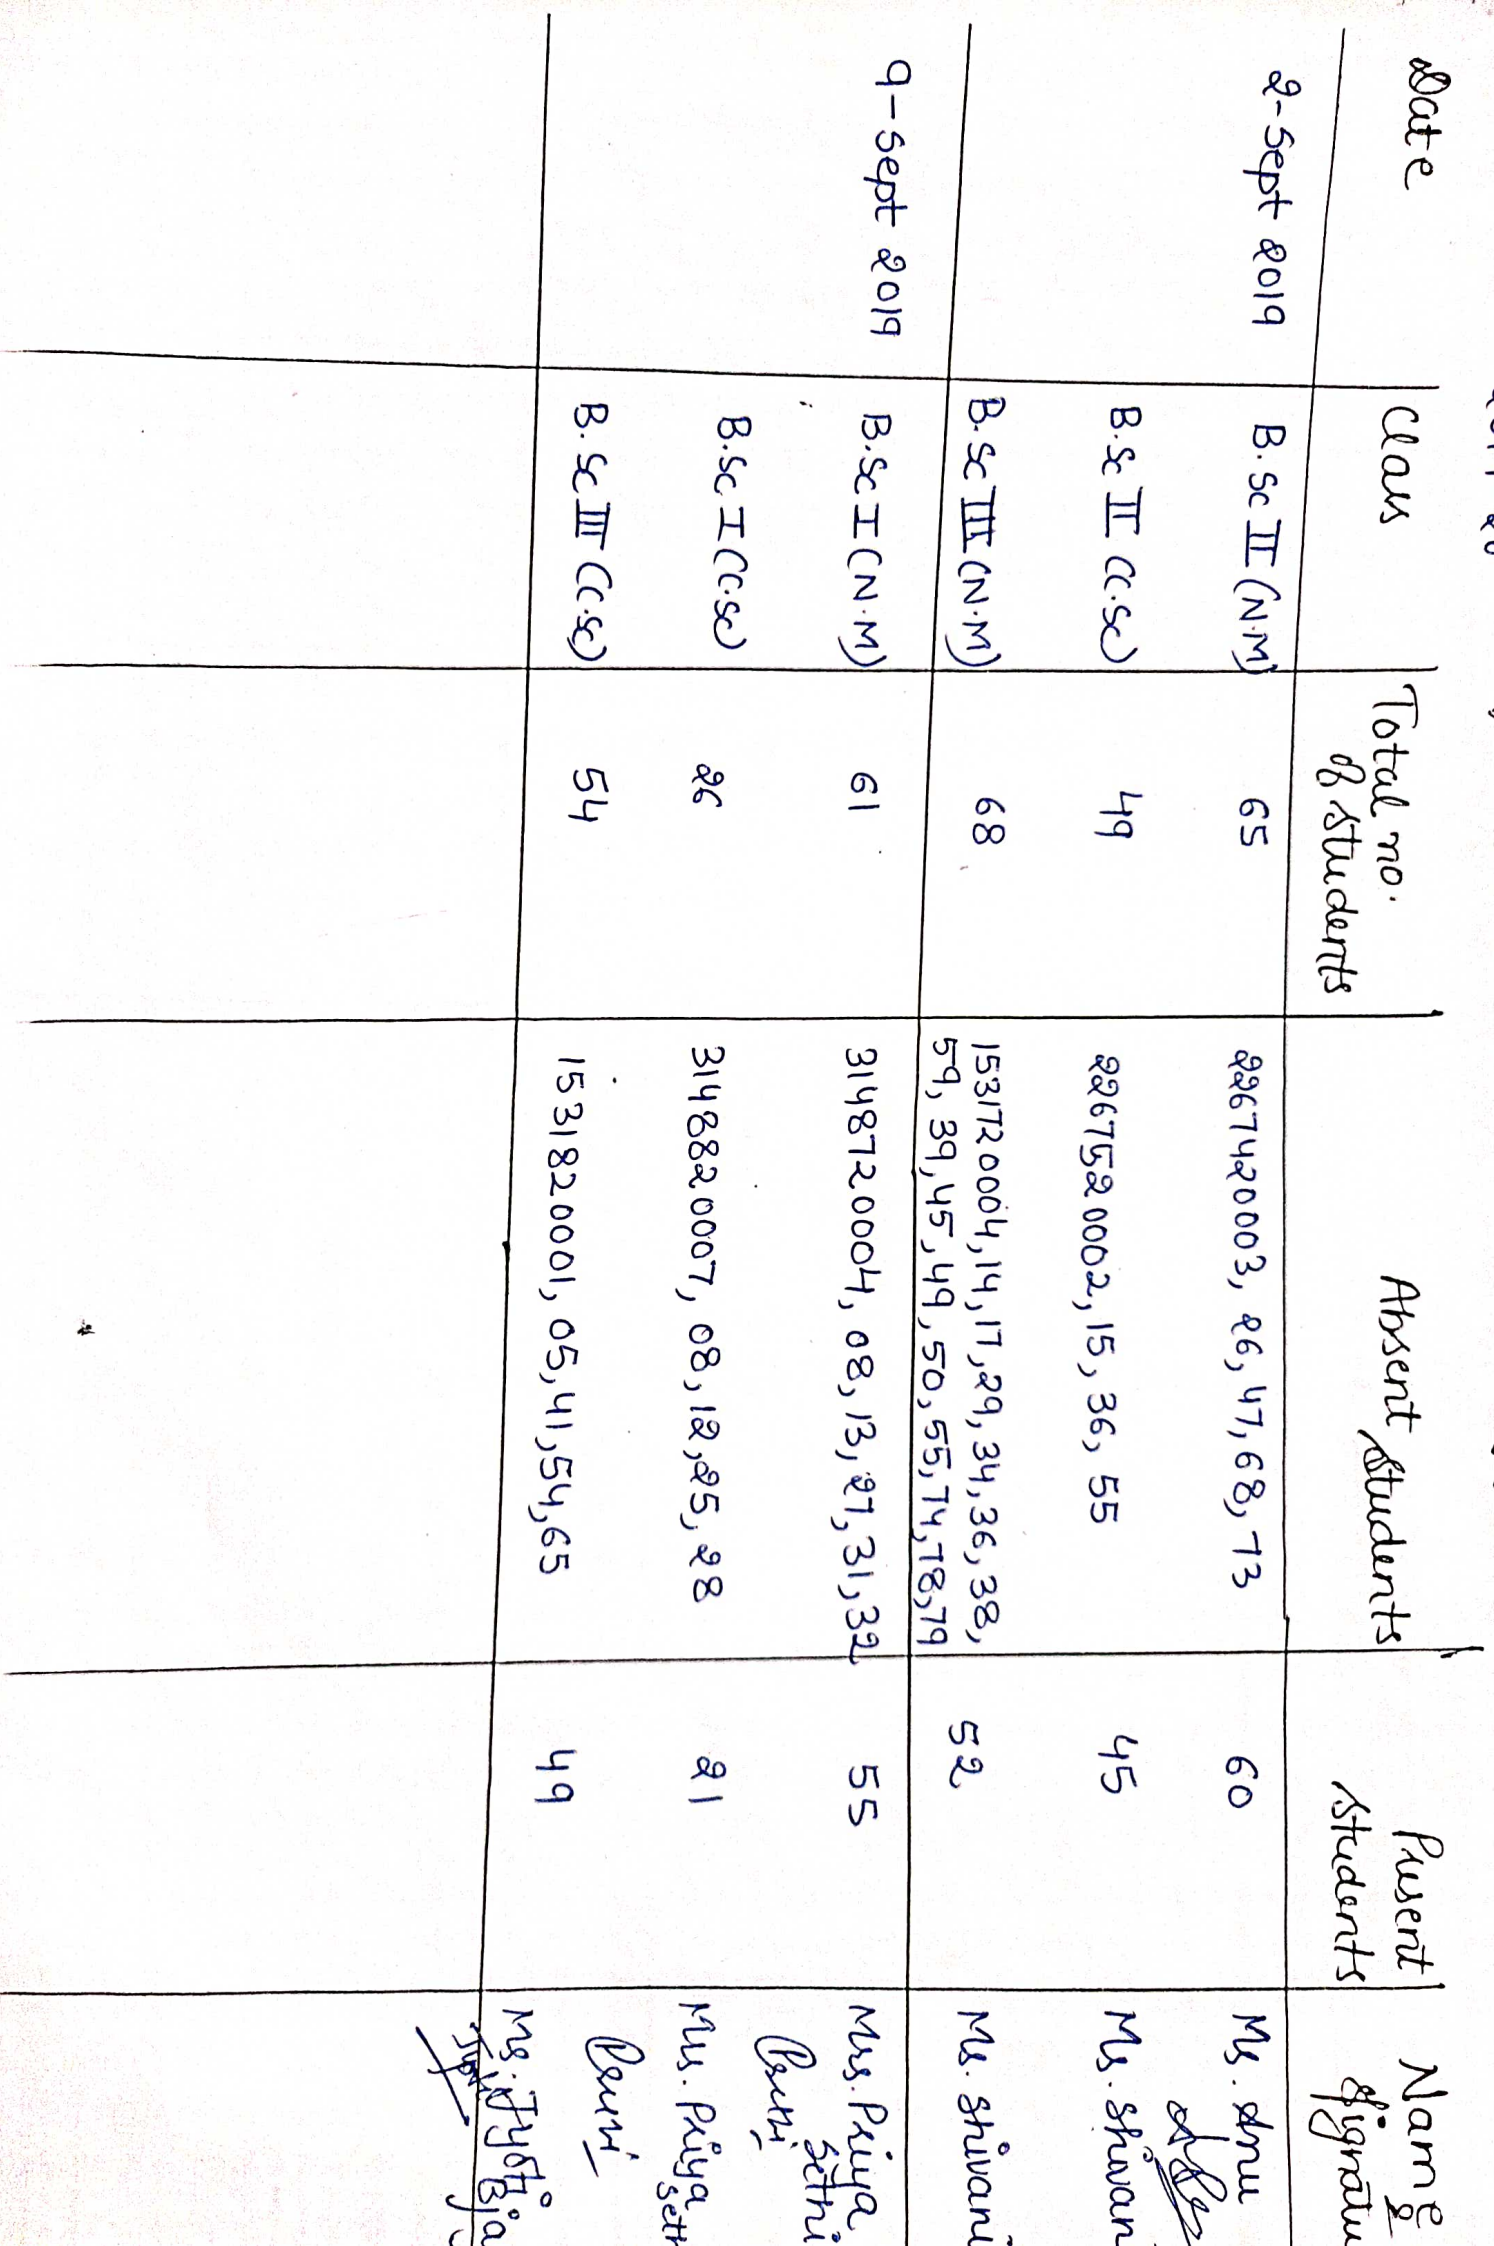 Date Class Total no. of students Absent students Present students Name &
2-Sept 2019 B.Sc II (N.M) 65 2267420003, 26, 47, 68, 73 60 Ms. Anu
B.Sc II (C.Sc) 49 2267520002, 15, 36, 55 45 Ms. Shivan
B.Sc III (N.M) 68 1531720004, 14, 17, 29, 34, 36, 38, 52 Ms. Shivani
59, 39, 45, 49, 50, 55, 74, 78, 79
9-Sept 2019 B.Sc I (N.M) 61 3148720004, 08, 13, 27, 31, 32 55 Mrs. Priya
Sethi
B.Sc I (C.Sc) 26 3148820007, 08, 12, 25, 28 21 Mrs. Priya
B.Sc III (C.Sc) 54 1531820001, 05, 41, 54, 65 49 Ms. Jyoti